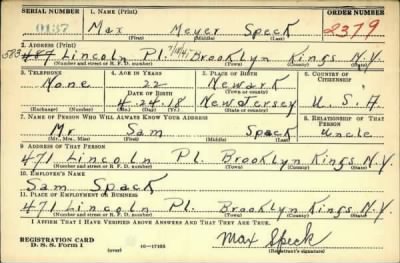 SERIAL NUMBER 1. NAME (Print) ORDER NUMBER
0137 Max Meyer Speck 2379
(First) (Middle) (Last)
2. ADDRESS (Print)
583 487 Lincoln Pl. Brooklyn Kings N.Y.
(Number and street or R. F. D. number) (Town) (County) (State)
3. TELEPHONE 4. AGE IN YEARS 5. PLACE OF BIRTH 6. COUNTRY OF CITIZENSHIP
None 22 Newark
DATE OF BIRTH (Town or county)
4-24-18 New Jersey U.S.A
(Exchange) (Number) (Mo.) (Day) (Yr.) (State or country)
7. NAME OF PERSON WHO WILL ALWAYS KNOW YOUR ADDRESS 8. RELATIONSHIP OF THAT PERSON
Mr. Sam Spack Uncle
(Mr., Mrs., Miss) (First) (Middle) (Last)
9. ADDRESS OF THAT PERSON
471 Lincoln Pl. Brooklyn Kings N.Y.
(Number and street or R. F. D. number) (Town) (County) (State)
10. EMPLOYER'S NAME
Sam Spack
11. PLACE OF EMPLOYMENT OR BUSINESS
471 Lincoln Pl. Brooklyn Kings N.Y.
(Number and street or R. F. D. number) (Town) (County) (State)
I AFFIRM THAT I HAVE VERIFIED ABOVE ANSWERS AND THAT THEY ARE TRUE.
REGISTRATION CARD
D. S. S. Form 1 (over) 16—17105 Max Speck
(Registrant's signature)